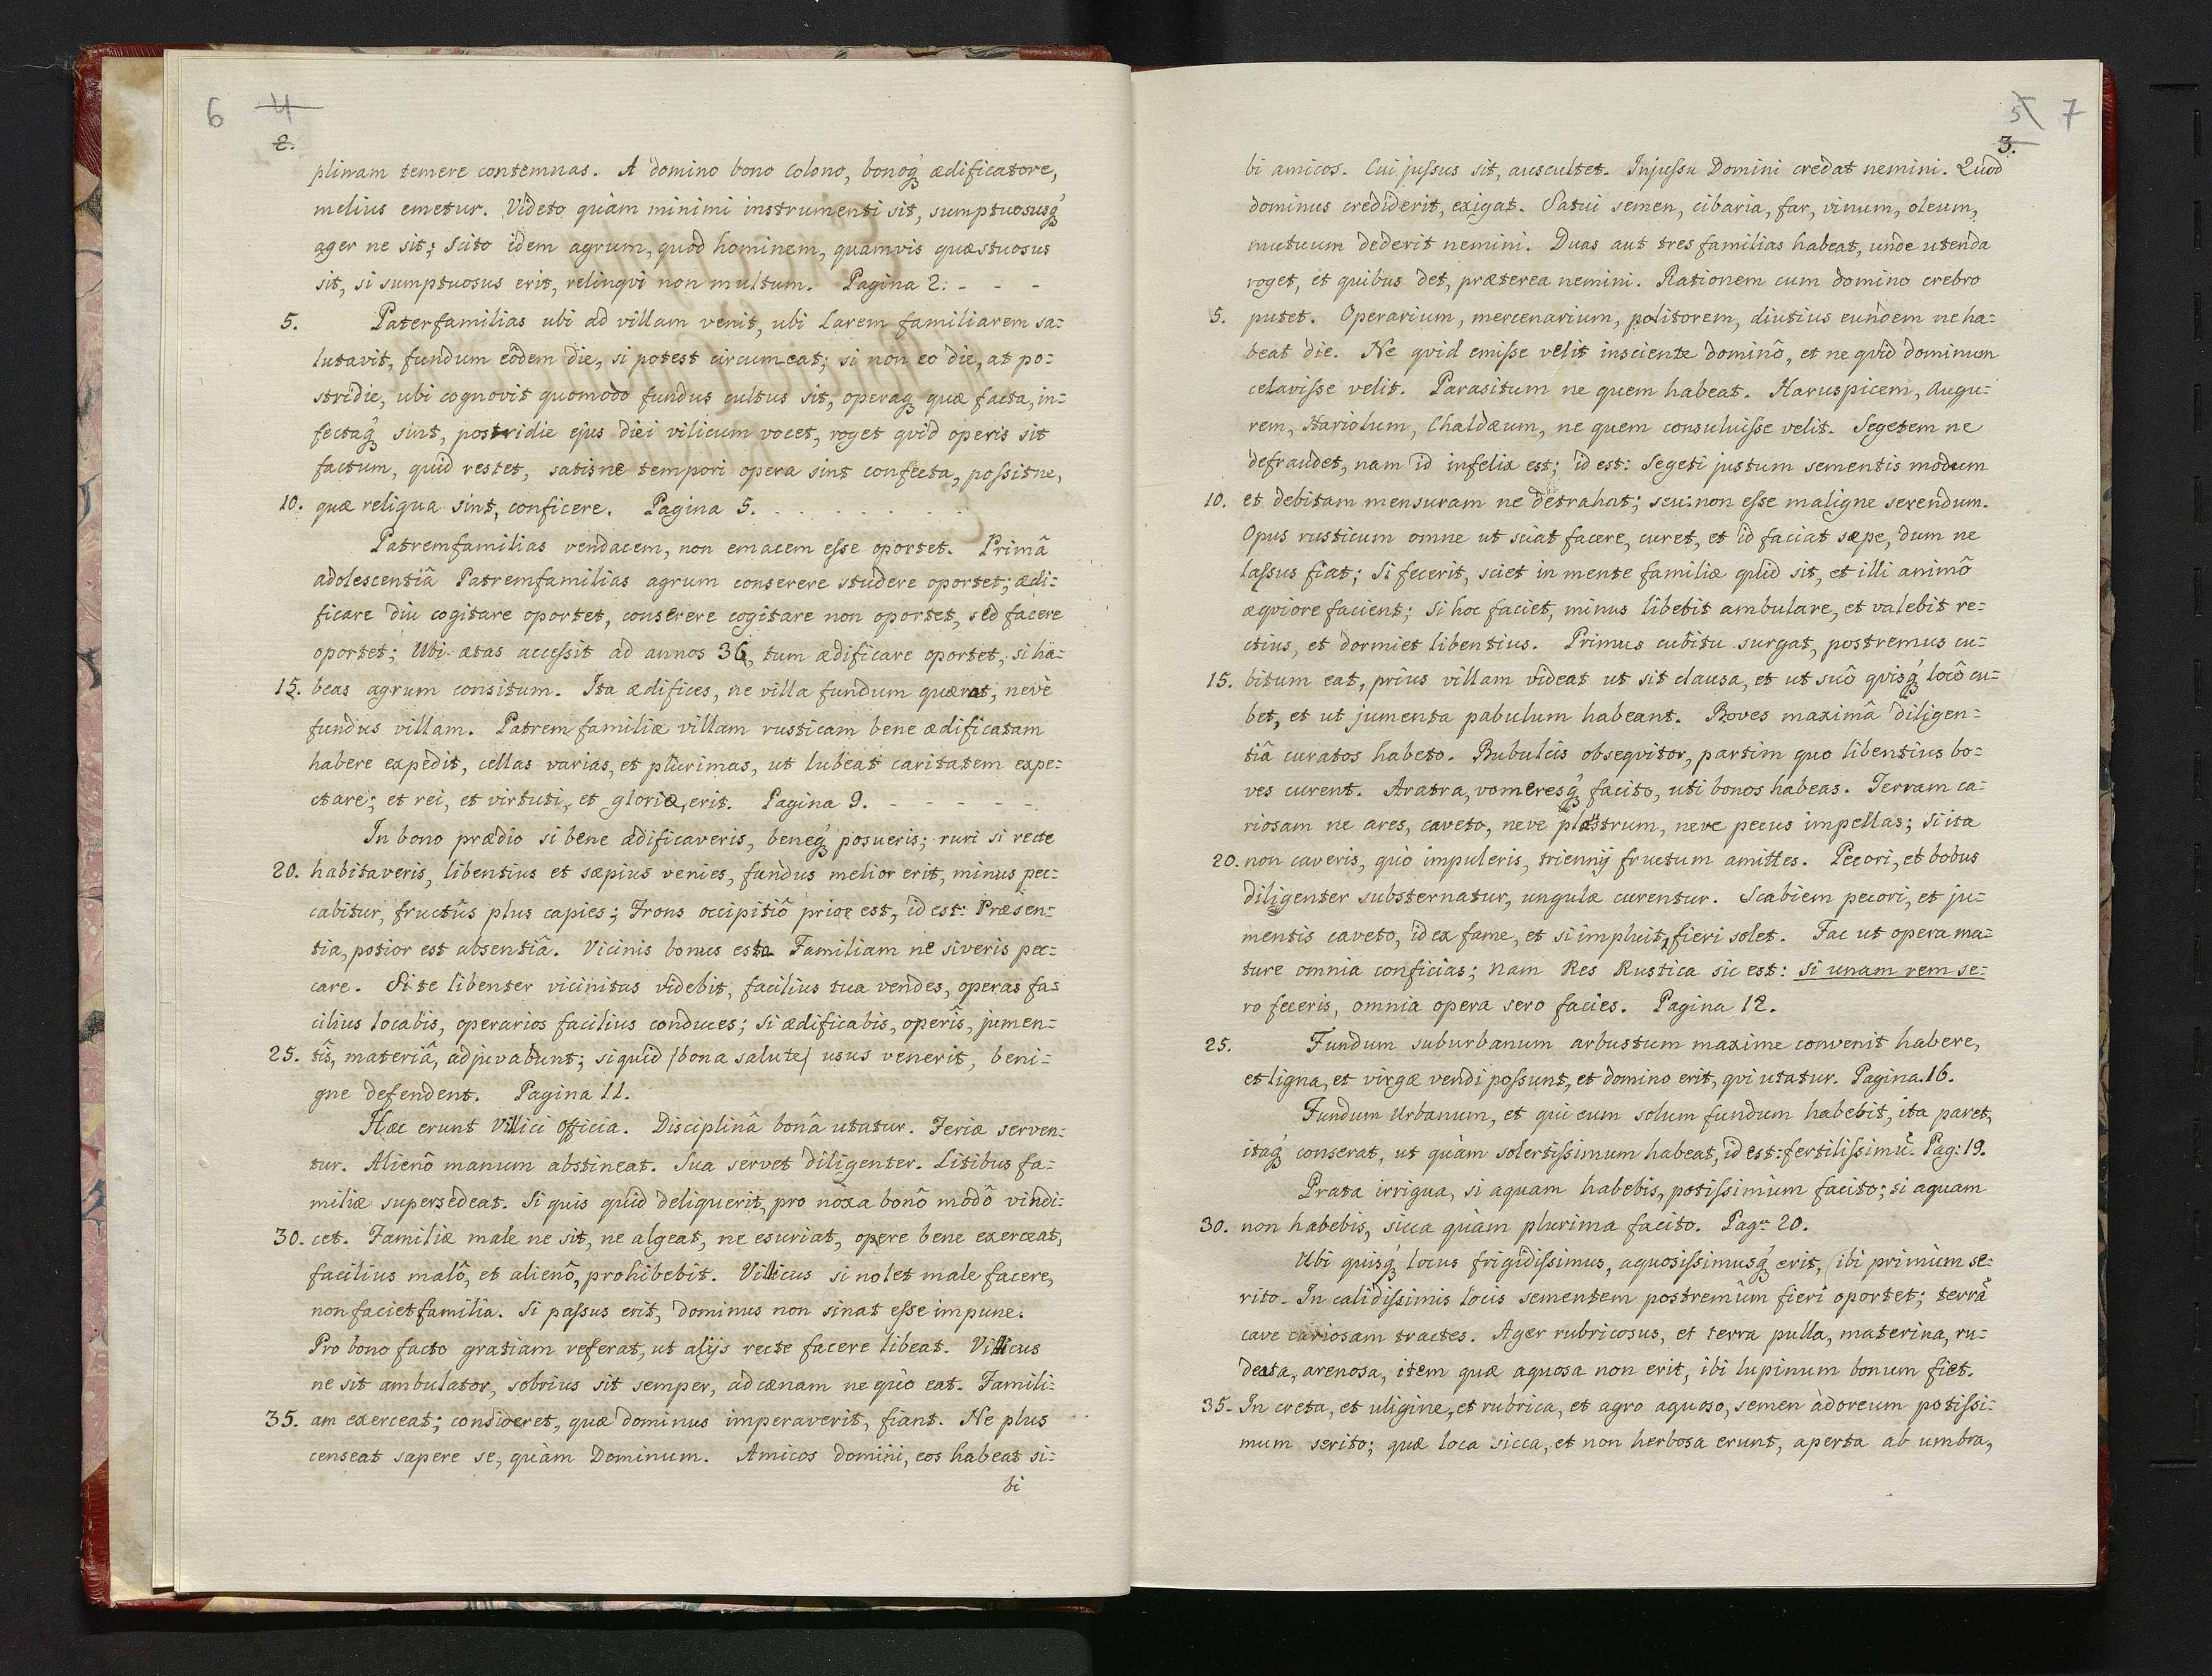 6 4
2.
plinam temere contemnas. A domino bono colono, bonoq́ ædificatore,
melius emetur. Videto quàm minimi instrumenti sit, sumptuosusq́
ager ne sit; Scito idem agrum, quod hominem, quamvis quæstuosus
sit, si sumptuosus erit, relinqvi non multum. Pagina 2. - - -
5. Paterfamilias ubi ad villam venit, ubi Larem familiarem sa=
lutavit, fundum eôdem die, si potest circumeat; si non eo die, at po=
stridie, ubi cognovit quomodo fundus cultus sit, operaq́ quæ facta, in=
fectaq́ sint, postridie ejus diei vilicum vocet, roget qvid operis sit
factum, quid restet, satisne tempori opera sint confecta, poſsitne,
10. quæ reliqua sint, conficere. Pagina 5. . . . . . . .
Patremfamilias vendacem, non emacem eſse oportet. Primâ
adolescentiâ Patremfamilias agrum conserere studere oportet; ædi=
ficare diu cogitare oportet, conserere cogitare non oportet, sed facere
oportet; Ubi ætas acceſsit ad annos 36, tum ædificare oportet, si ha=
15. beas agrum consitum. Ita ædifices, ne villa fundum quærat, nevè
fundus villam. Patrem familiæ villam rusticam bene ædificatam
habere expedit, cellas varias, et plurimas, ut lubeat caritatem expe=
ctare; et rei, et virtuti, et gloriæ, erit. Pagina 9. - - - - -
In bono prædio si bene ædificaveris, beneq́ posueris; ruri si recte
20. habitaveris, libentius et sæpius venies, fundus melior erit, minus pec=
cabitur, fructûs plus capies; Frons occipitiô prior est, id est: Præsen=
tia, potior est absentiâ. Vicinis bonus esto. Familiam ne siveris pec=
care. Si te libenter vicinitas videbit, facilius tua vendes, operas fa=
cilius locabis, operarios facilius conduces; si ædificabis, operîs, jumen=
25. tîs, materiâ, adjuvabunt; siquid /bona salute/ usus venerit, beni=
gne defendent. Pagina 11.
Hæc erunt Villici officia. Disciplinâ bonâ utatur. Feriæ serven=
tur. Alienô manum abstineat. Sua servet diligenter. Litibus fa=
miliæ supersedeat. Si quis quid deliquerit, pro noxa bonô modô vindi=
30. cet. Familiæ male ne sit, ne algeat, ne esuriat, opere bene exerceat,
facilius malô, et alienô, prohibebit. Villicus si nolet male facere,
non faciet familia. Si paſsus erit, dominus non sinat eſse impune.
Pro bono facto gratiam referat, ut alijs recte facere libeat. Villicus
ne sit ambulator, sobrius sit semper, ad cænam ne quò eat. Famili=
35. am exerceat; consideret, quæ dominus imperaverit, fiant. Ne plus
censeat sapere se, quàm Dominum. Amicos domini, eos habeat si=
bi
5 7
3.
bi amicos. Cui juſsus sit, auscultet. Injuſsu Domini credat nemini. Quod
dominus crediderit, exigat. Satui semen, cibaria, far, vinum, oleum,
mutuum dederit nemini. Duas aut tres familias habeat, unde utenda
roget, et quibus det, præterea nemini. Rationem cum domino crebro
5. putet. Operarium, mercenarium, politorem, diutius eundem ne ha=
beat die. Ne qvid emiſse velit insciente dominô, et ne qvid dominum
celaviſse velit. Parasitum ne quem habeat. Haruspicem, Augu=
rem, Hariolum, Chaldæum, ne quem consuluiſse velit. Segetem ne
defraudet, nam id infelix est; id est: Segeti justum sementis modum
10. et debitam mensuram ne detrahat; seu: non eſse maligne serendum.
Opus rusticum omne ut sciat facere, curet, et id faciat sæpe, dum ne
laſsus fiat; Si fecerit, sciet in mente familiæ quid sit, et illi animô
æqviore facient; Si hoc faciet, minus libebit ambulare, et valebit re=
ctius, et dormiet libentius. Primus cubitu surgat, postremus cu=
15. bitum eat, prius villam videat ut sit clausa, et ut suô qvisq́ locô cu=
bet, et ut jumenta pabulum habeant. Boves maximâ diligen=
tiâ curatos habeto. Bubulcis obseqvitor, partim quo libentius bo=
ves curent. Aratra, vomeresq́ facito, uti bonos habeas. Terram ca=
riosam ne ares, caveto, neve plaustrum, neve pecus impellas; Si ita
20. non caveris, quò impuleris, triennij fructum amittes. Pecori, et bobus
diligenter substernatur, ungulæ curentur. Scabiem pecori, et ju=
mentis caveto, id ex fame, et si impluit, fieri solet. Fac ut opera ma=
ture omnia conficias; Nam Res Rustica sic est: si unam rem se=
ro feceris, omnia opera sero facies. Pagina 12.
25. Fundum suburbanum arbustum maxime convenit habere,
et ligna, et virgæ vendi poſsunt, et domino erit, qvi utatur. Pagina. 16.
Fundum Urbanum, et qui eum solum fundum habebit, ita paret,
itaq́ conserat, ut quàm solertiſsimum habeat, id est: fertiliſsimũ. Pag: 19.
Prata irrigua, si aquam habebis, potiſsimùm facito; si aquam
30. non habebis, sicca quàm plurima facito. Pag: 20.
Ubi quisq́ locus frigidiſsimus, aquosiſsimusq́ erit, ibi primùm se=
rito. In calidiſsimis locis sementem postremùm fieri oportet; terrã
cave cariosam tractes. Ager rubricosus, et terra pulla, materina, ru=
decta, arenosa, item quæ aquosa non erit, ibi lupinum bonum fiet.
35. In creta, et uligine, et rubrica, et agro aquoso, semen àdoreum potiſsi=
mum serito; quæ loca sicca, et non herbosa erunt, aperta ab umbra,